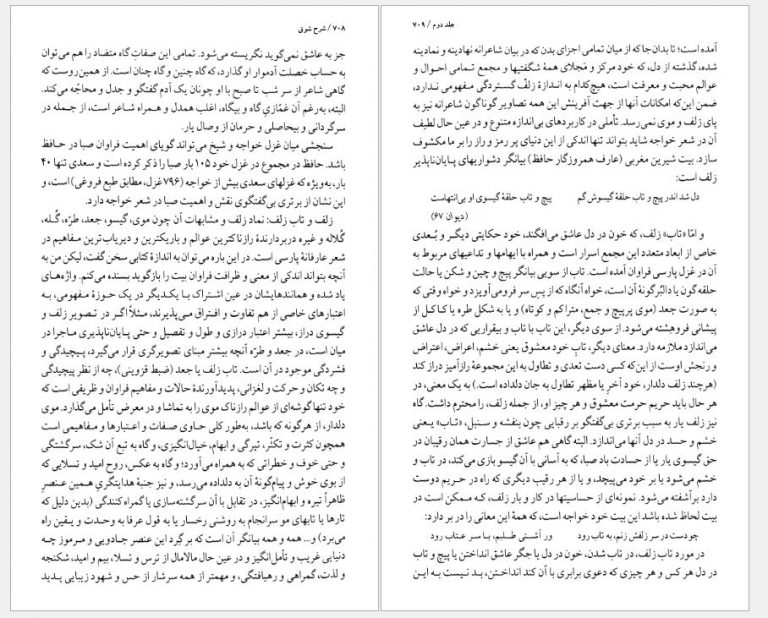 ۷۰۸ / شرح شوق
جز به عاشق نمی‌گوید نگریسته می‌شود. تمامی این صفاتِ گاه متضاد را هم می‌توان
به حساب خصلت آدموار او گذارد، که گاه چنین و گاه چنان است. از همین روست که
گاهی شاعر از سر شب تا صبح با او چونان یک آدم گفتگو و جدل و محاجّه می‌کند.
البته، به‌رغم آن غمّازیِ گاه و بیگاه، اغلب همدل و همراه شاعر است، از جمله در
سرگردانی و بیحاصلی و حرمان از وصال یار.
سنجشی میان غزل خواجه و شیخ می‌تواند گویای اهمیت فراوان صبا در حافظ
باشد. حافظ در مجموع در غزل خود ۱۰۵ بار صبا را ذکر کرده است و سعدی تنها ۴۰
بار، به‌ویژه که غزلهای سعدی بیش از خواجه (۷۹۶ غزل، مطابق طبع فروغی) است، و
این نشان از برتری بی‌گفتگوی نقش و اهمیت صبا در شعر خواجه دارد.
زلف و تاب زلف: نماد زلف و مشابهات آن چون موی، گیسو، جعد، طرّه، کُله،
کُلاله و غیره دربردارندهٔ رازناکترین عوالم و باریکترین و دیریاب‌ترین مفاهیم در
شعر عارفانهٔ پارسی است. در این باره می‌توان به اندازهٔ کتابی سخن گفت، لیکن من به
آنچه بتواند اندکی از معنی و ظرافت فراوان بیت را بازگوید بسنده می‌کنم. واژه‌های
یاد شده و همانندهایشان در عین اشتراک با یکدیگر در یک حوزهٔ مفهومی، به
اعتبارهای خاصی از هم تفاوت و افتراق می‌پذیرند، مثلاً اگر در تصویر زلف و
گیسوی دراز، بیشتر اعتبار درازی و طول و تفصیل و حتی پایان‌ناپذیری ماجرا در
میان است، در جعد و طرّه آنچه بیشتر مبنای تصویرگری قرار می‌گیرد، پیچیدگی و
فشردگی موجود در آن است. تاب زلف یا جعد (ضبط قزوینی)، چه از نظر پیچیدگی
و چه تکان و حرکت و لغزانی، پدیدآورندهٔ حالات و مفاهیم فراوان و ظریفی است که
خود تنها گوشه‌ای از عوالم رازناک موی را به تماشا و در معرض تأمل می‌گذارد. موی
دلدار، از هرگونه که باشد، به‌طور کلی حاوی صفات و اعتبارها و مفاهیمی است
همچون کثرت و تکثّر، تیرگی و ابهام، خیال‌انگیزی، و گاه به تبع آن شک، سرگشتگی
و حتی خوف و خطراتی که به همراه می‌آورد؛ و گاه به عکس، روح امید و تسلایی که
از بوی خوش و پیام‌گونهٔ آن به دلداده می‌رسد، و نیز جنبهٔ هدایتگریِ همین عنصرِ
ظاهراً تیره و ابهام‌انگیز، در تقابل با آن سرگشته‌سازی یا گمراه کنندگی (بدین دلیل که
تارها یا تابهای مو سرانجام به روشنی رخسار یا به قول عرفا به وحدت و یقین راه
می‌برد) و... همه و همه بیانگر آن است که بر گرد این عنصر جادویی و مرموز چه
دنیایی غریب و تأمل‌انگیز و در عین حال مالامال از ترس و تسلا، بیم و امید، شکنجه
و لذت، گمراهی و رهیافتگی، و مهمتر از همه سرشار از حس و شهود زیبایی پدید
جلد دوم / ۷۰۹
آمده است؛ تا بدان جا که از میان تمامی اجزای بدن که در بیان شاعرانه نهادینه و نمادینه
شده، گذشته از دل، که خود مرکز و مَجلای همهٔ شگفتیها و مجمع تمامی احوال و
عوالم محبت و معرفت است، هیچ‌کدام به اندازهٔ زلف گستردگی مفهومی ندارد،
ضمن این‌که امکانات آنها از جهت آفرینش این همه تصاویر گوناگون شاعرانه نیز به
پای زلف و موی نمی‌رسد. تأملی در کاربردهای بی‌اندازه متنوع و در عین حال لطیف
آن در شعر خواجه شاید بتواند تنها اندکی از این دنیای پر رمز و راز را بر ما مکشوف
سازد. بیت شیرین مغربی (عارف همروزگار حافظ) بیانگر دشواریهای پایان‌ناپذیر
زلف است:
دل شد اندر پیچ و تاب حلقهٔ گیسوش گم پیچ و تاب حلقهٔ گیسوی او بی‌انتهاست
(دیوان ۶۷)
و امّا «تاب» زلف، که خون در دل عاشق می‌افگند، خود حکایتی دیگر و بُعدی
خاص از ابعاد متعدد این مجمع اسرار است و همراه با ایهامها و تداعیهای مربوط به
آن در غزل پارسی فراوان آمده است. تاب از سویی بیانگر پیچ و چین و شکن یا حالت
حلقه گون یا دالبُرگونهٔ آن است، خواه آنگاه که از پسِ سر فرومی‌آویزد و خواه وقتی که
به صورت جعد (موی پرپیچ و جمع، متراکم و کوتاه) و یا به شکل طره یا کاکل از
پیشانی فروهشته می‌شود. از سوی دیگر، این تاب با تاب و بیقراریی که در دل عاشق
می‌اندازد ملازمه دارد. معنای دیگر، تابِ خود معشوق یعنی خشم، اعراض، اعتراض
و رنجش اوست از این‌که کسی دست تعدی و تطاول به این مجموعهٔ رازآمیز دراز کند
(هرچند زلف دلدار، خود آخرِ یا مظهر تطاول به جان دلداده است.) به یک معنی، در
هر حال باید حریم حرمت معشوق و هر چیز او، از جمله زلف، را محترم داشت. گاه
نیز زلف یار به سبب برتری بی‌گفتگو بر رقبایی چون بنفشه و سنبل، «تاب» یعنی
خشم و حسد در دل آنها می‌اندازد. البته گاهی هم عاشق از جسارت همان رقیبان در
حق گیسوی یار یا از حسادت باد صبا، که به آسانی با آن گیسو بازی می‌کند، در تاب و
خشم می‌شود یا بر خود می‌پیچد، و یا از هر رقیب دیگری که راه در حریم دوست
دارد برآشفته می‌شود. نمونه‌ای از حساسیتها در کار و بار زلف، که ممکن است در
بیت لحاظ شده باشد این بیت خود خواجه است، که همهٔ این معانی را در بر دارد:
چو دست در سر زلفش زنم، به تاب رود ور آشتی طلبم، با سر عتاب رود
در مورد تاب زلف، در تاب شدن، خون در دل یا جگر عاشق انداختن یا پیچ و تاب
در دل هر کس و هر چیزی که دعوی برابری با آن کند انداختن، بد نیست به این